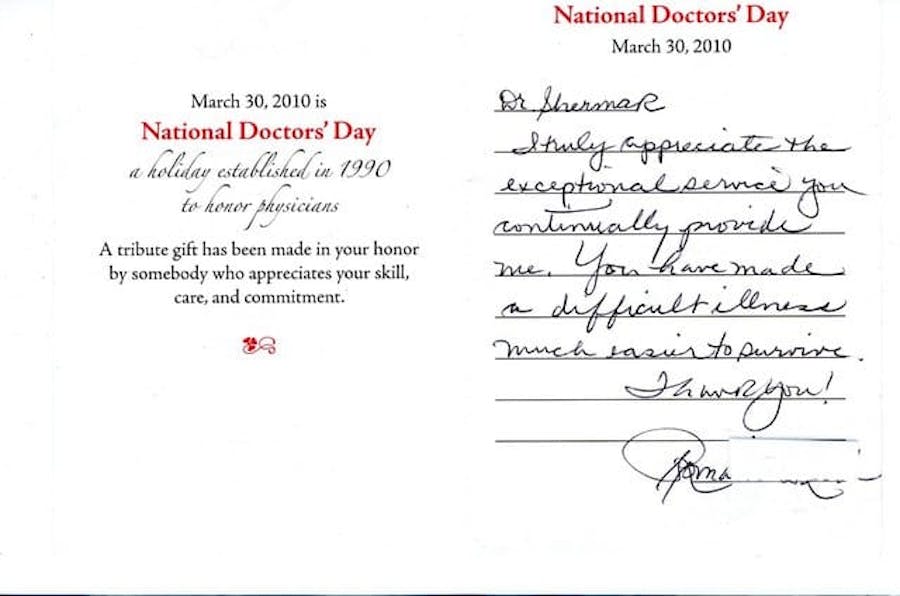 March 30, 2010 is
National Doctors' Day
a holiday established in 1990
to honor physicians
A tribute gift has been made in your honor
by somebody who appreciates your skill,
care, and commitment.
National Doctors' Day
March 30, 2010
Dr. Shermak
I truly appreciate the
exceptional service you
continually provide
me. You have made
a difficult illness
much easier to survive.
Thank you!
Roma